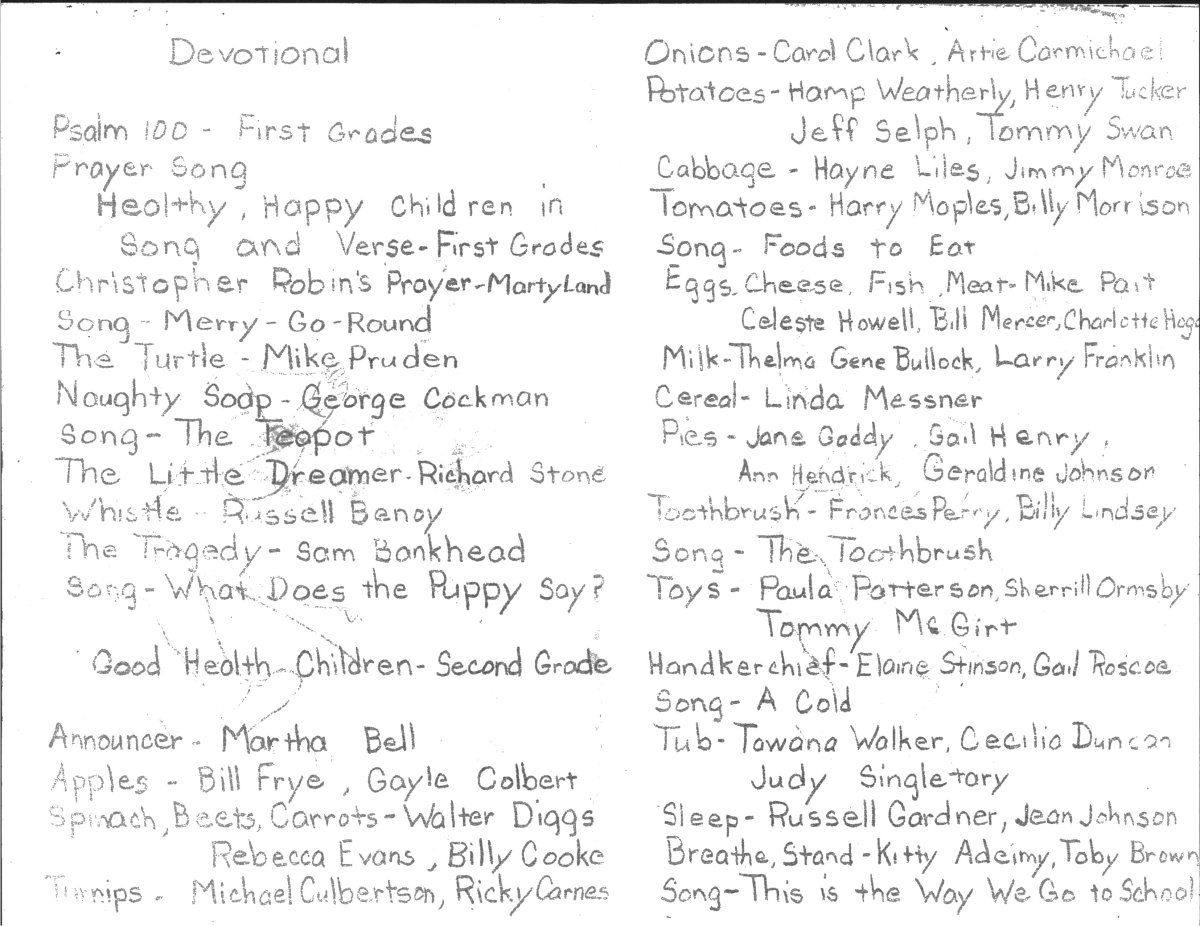 Devotional
Psalm 100 - First Grades
Prayer Song
Healthy, Happy Children in
Song and Verse - First Grades
Christopher Robin's Prayer - Marty Land
Song - Merry - Go - Round
The Turtle - Mike Pruden
Naughty Soap - George Cockman
Song - The Teapot
The Little Dreamer - Richard Stone
Whistle - Russell Benoy
The Tragedy - Sam Bankhead
Song - What Does the Puppy Say?
Good Health Children - Second Grade
Announcer - Martha Bell
Apples - Bill Frye, Gayle Colbert
Spinach, Beets, Carrots - Walter Diggs
Rebecca Evans, Billy Cooke
Turnips - Michael Culbertson, Ricky Carnes
Onions - Carol Clark, Artie Carmichael
Potatoes - Hamp Weatherly, Henry Tucker
Jeff Selph, Tommy Swan
Cabbage - Hayne Liles, Jimmy Monroe
Tomatoes - Harry Maples, Billy Morrison
Song - Foods to Eat
Eggs, Cheese, Fish, Meat - Mike Pait
Celeste Howell, Bill Mercer, Charlotte
Milk - Thelma Gene Bullock, Larry Franklin
Cereal - Linda Messner
Pies - Jane Gaddy, Gail Henry,
Ann Hendrick, Geraldine Johnson
Toothbrush - Frances Perry, Billy Lindsey
Song - The Toothbrush
Toys - Paula Patterson, Sherrill Ormsby
Tommy McGirt
Handkerchief - Elaine Stinson, Gail Roscoe
Song - A Cold
Tub - Towana Walker, Cecilia Duncan
Judy Singletary
Sleep - Russell Gardner, Jean Johnson
Breathe, Stand - Kitty Adeimy, Toby Brown
Song - This is the Way We Go to School